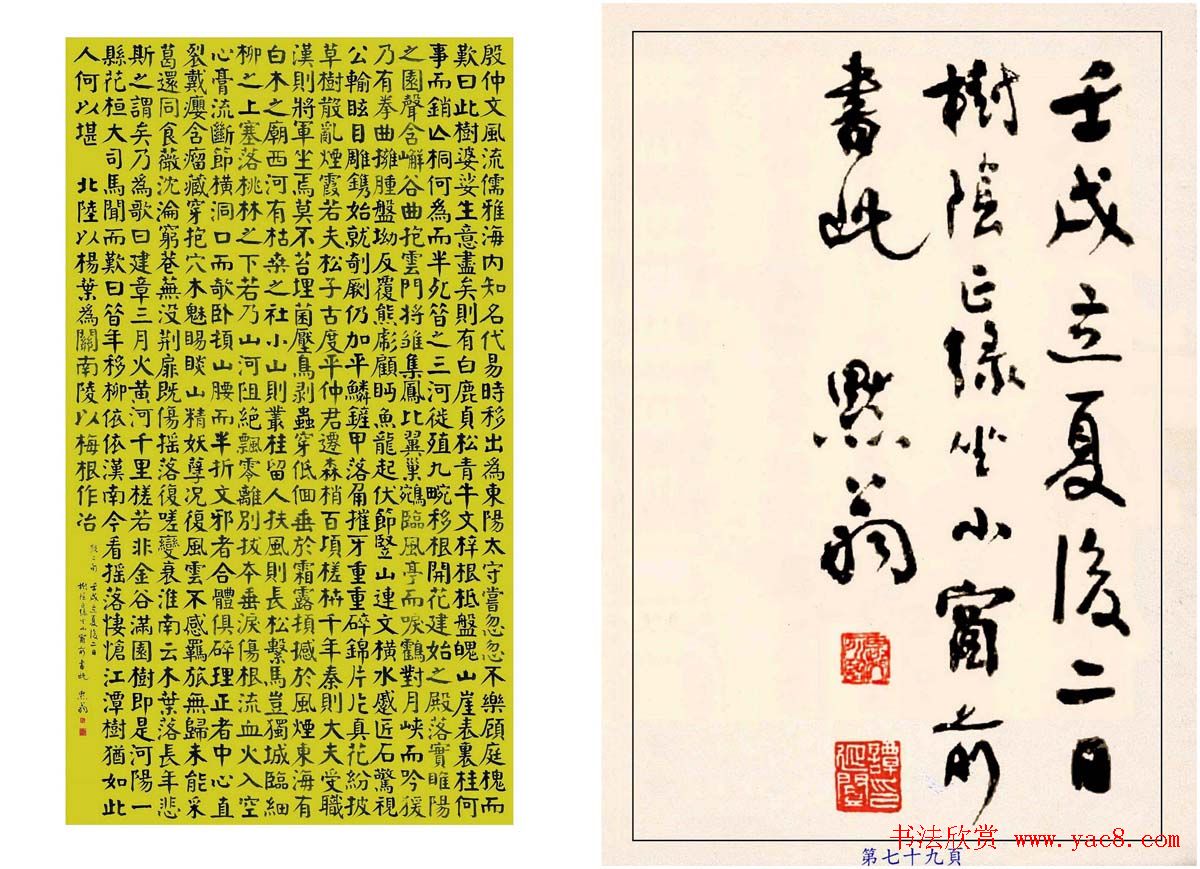 殷仲文風流儒雅海內知名代易時移出為東陽太守嘗忽忽不樂顧庭槐而
歎曰此樹婆娑生意盡矣則有白鹿貞松青牛文梓根柢盤魄山崖表裏桂何
事而銷亡桐何為而半死昔之三河徙殖九畹移根開花建始之殿落實睢陽
之園聲含嶰谷曲抱雲門將雛集鳳比翼巢鵷臨風亭而唳鶴對月峽而吟猨
乃有拳曲擁腫盤坳反覆熊彪顧眄魚龍起伏節豎山連文橫水蹙匠石驚視
公輸眩目雕鐫始就剞劂仍加平鱗鏟甲落角摧牙重重碎錦片片真花紛披
草樹散亂煙霞若夫松子古度平仲君遷森梢百頃槎枿千年秦則大夫受職
漢則將軍坐焉莫不苔埋菌壓鳥剥蟲穿低佪垂於霜露頓撼於風煙東海有
白木之廟西河有枯桑之社小山則叢桂留人扶風則長松繫馬豈獨城臨細
柳之上塞落桃林之下若乃山河阻絕飄零離別拔本垂淚傷根流血火入空
心膏流斷節橫洞口而欹臥頓山腰而半折文邪者合體俱碎理正者中心直
裂戴癭含瘤藏穿抱穴木魅睗睒山精妖孽況復風雲不感羈旅無歸未能采
葛還同食薇沈淪窮巷蕪没荆扉既傷搖落復嗟變衰淮南云木葉落長年悲
斯之謂矣乃為歌曰建章三月火黃河千里槎若非金谷滿園樹即是河陽一
縣花桓大司馬聞而歎曰昔年移柳依依漢南今看搖落悽愴江潭樹猶如此
人何以堪 北陸以楊葉為關南陵以梅根作冶
脫二句 壬戌立夏後二日
樹陰正綠坐小窗前書此 默翁
壬戌立夏後二日
樹陰正綠坐小窗前
書此 默翁
譚印延闓
书法欣赏 www.yac8.com
第七十九頁